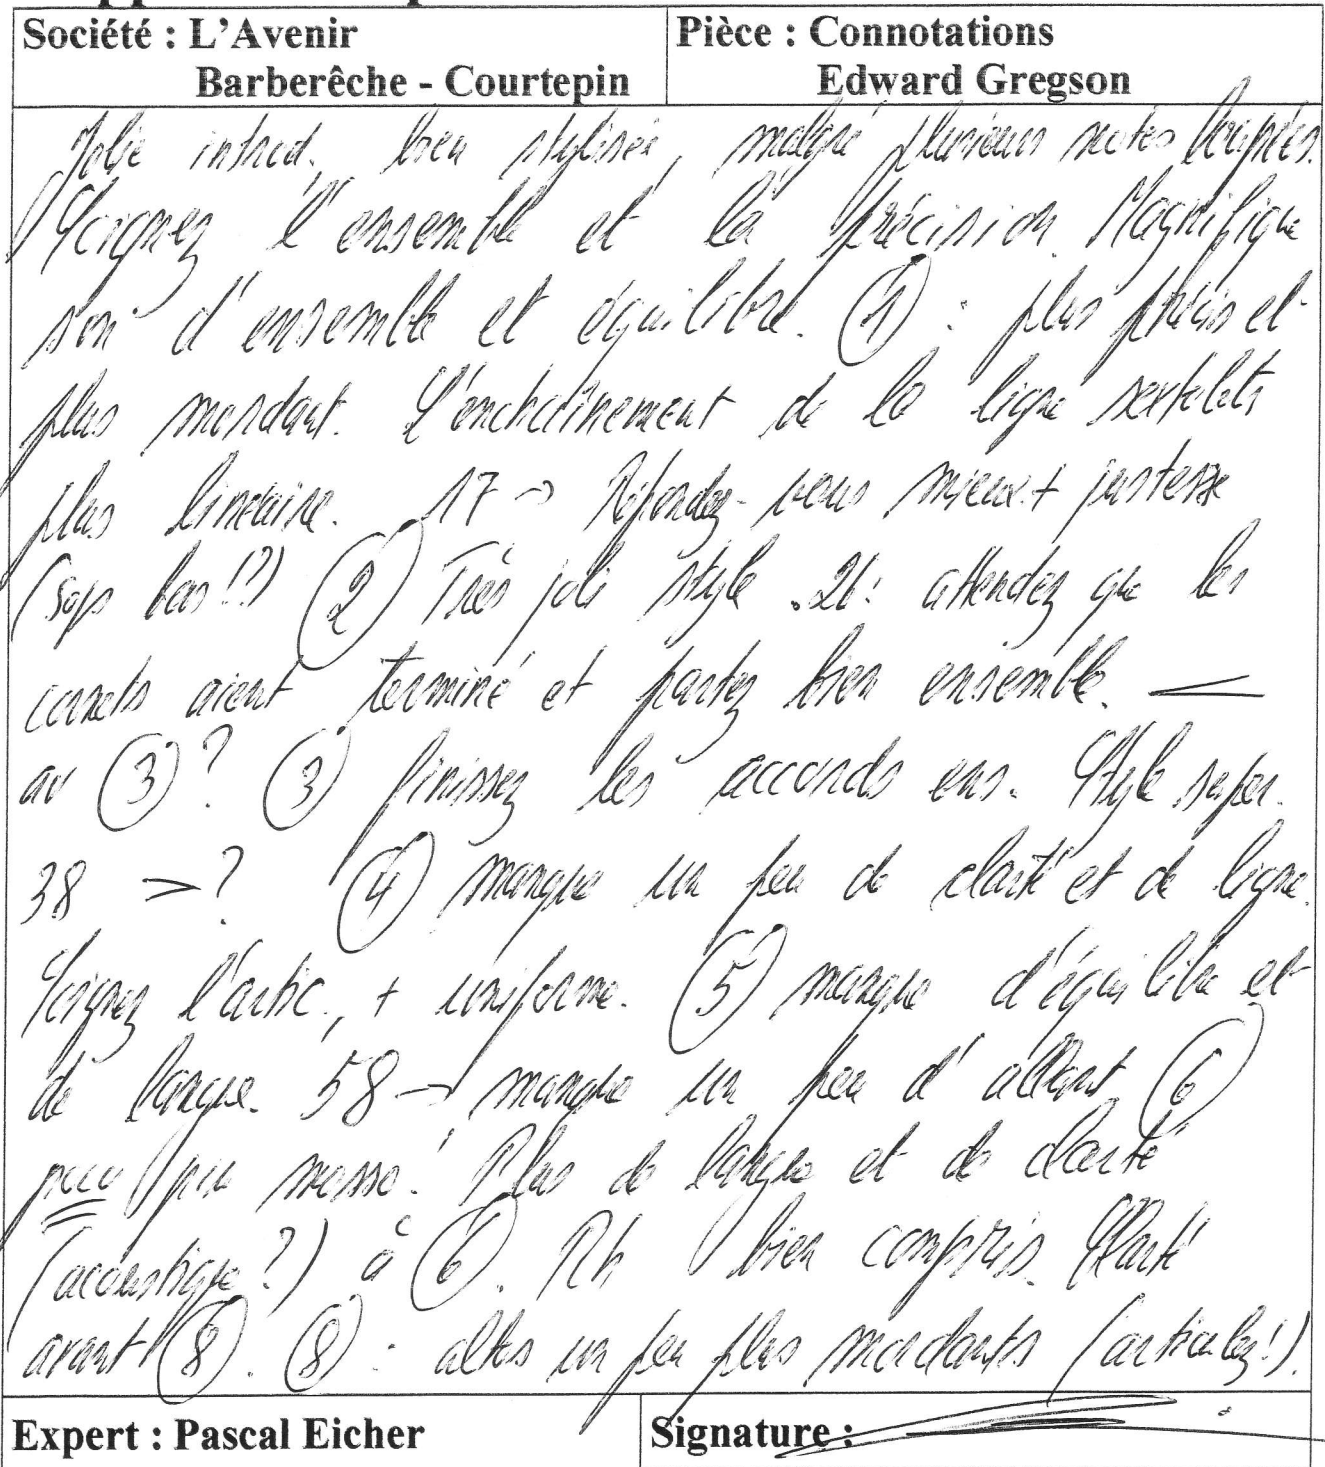 Société : L'Avenir
Barberêche - Courtepin
Pièce : Connotations
Edward Gregson
Jolie introd. bien stylisée, malgré plusieurs notes loupées.
Soignez l'ensemble et la précision. Magnifique
son d'ensemble et équilibre. (1) : plus précis et
plus mordant. L'enchaînement de la ligne sextolets
plus linéaire. 17 → Répondez-vous mieux + justesse
(sops bas !?) (2) Très joli style. 26 : attendez que les
cornets aient terminé et partez bien ensemble. <
av (3) ? (3) finissez les accords ens. Style super.
38 > ? (4) manque un peu de clarté et de ligne.
Soignez l'artic., + uniforme. (5) manque d'équilibre et
de langue. 58 → manque un peu d'allant (6)
poco più mosso ! Plus de langue et de clarté
(acoustique ?) à (6). Rh bien compris. Clarté
avant (8). (8) : altos un peu plus mordants (articulez !).
Expert : Pascal Eicher
Signature :